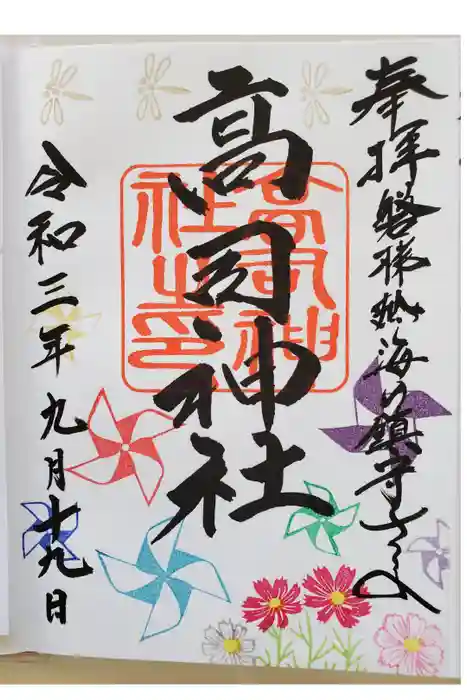 奉拝 磐梯熱海の鎮守さま
高司神社
高司神
社之印
令和三年九月十九日